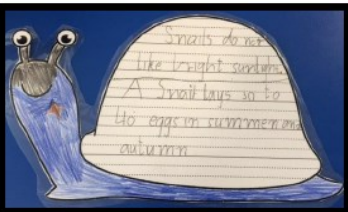 Snails do not
like bright sunlight
A Snail lays 30 to
40 eggs in summer and
autumn